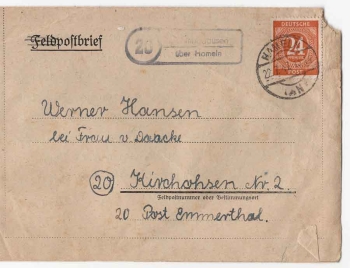 Feldpostbrief
20
über Hameln
24
POST
HAMELN
Werner Hansen
bei Frau v. Daacke
20 Kirchohsen Nr. 2.
Feldpostnummer oder Bestimmungsort
20 Post Emmerthal.